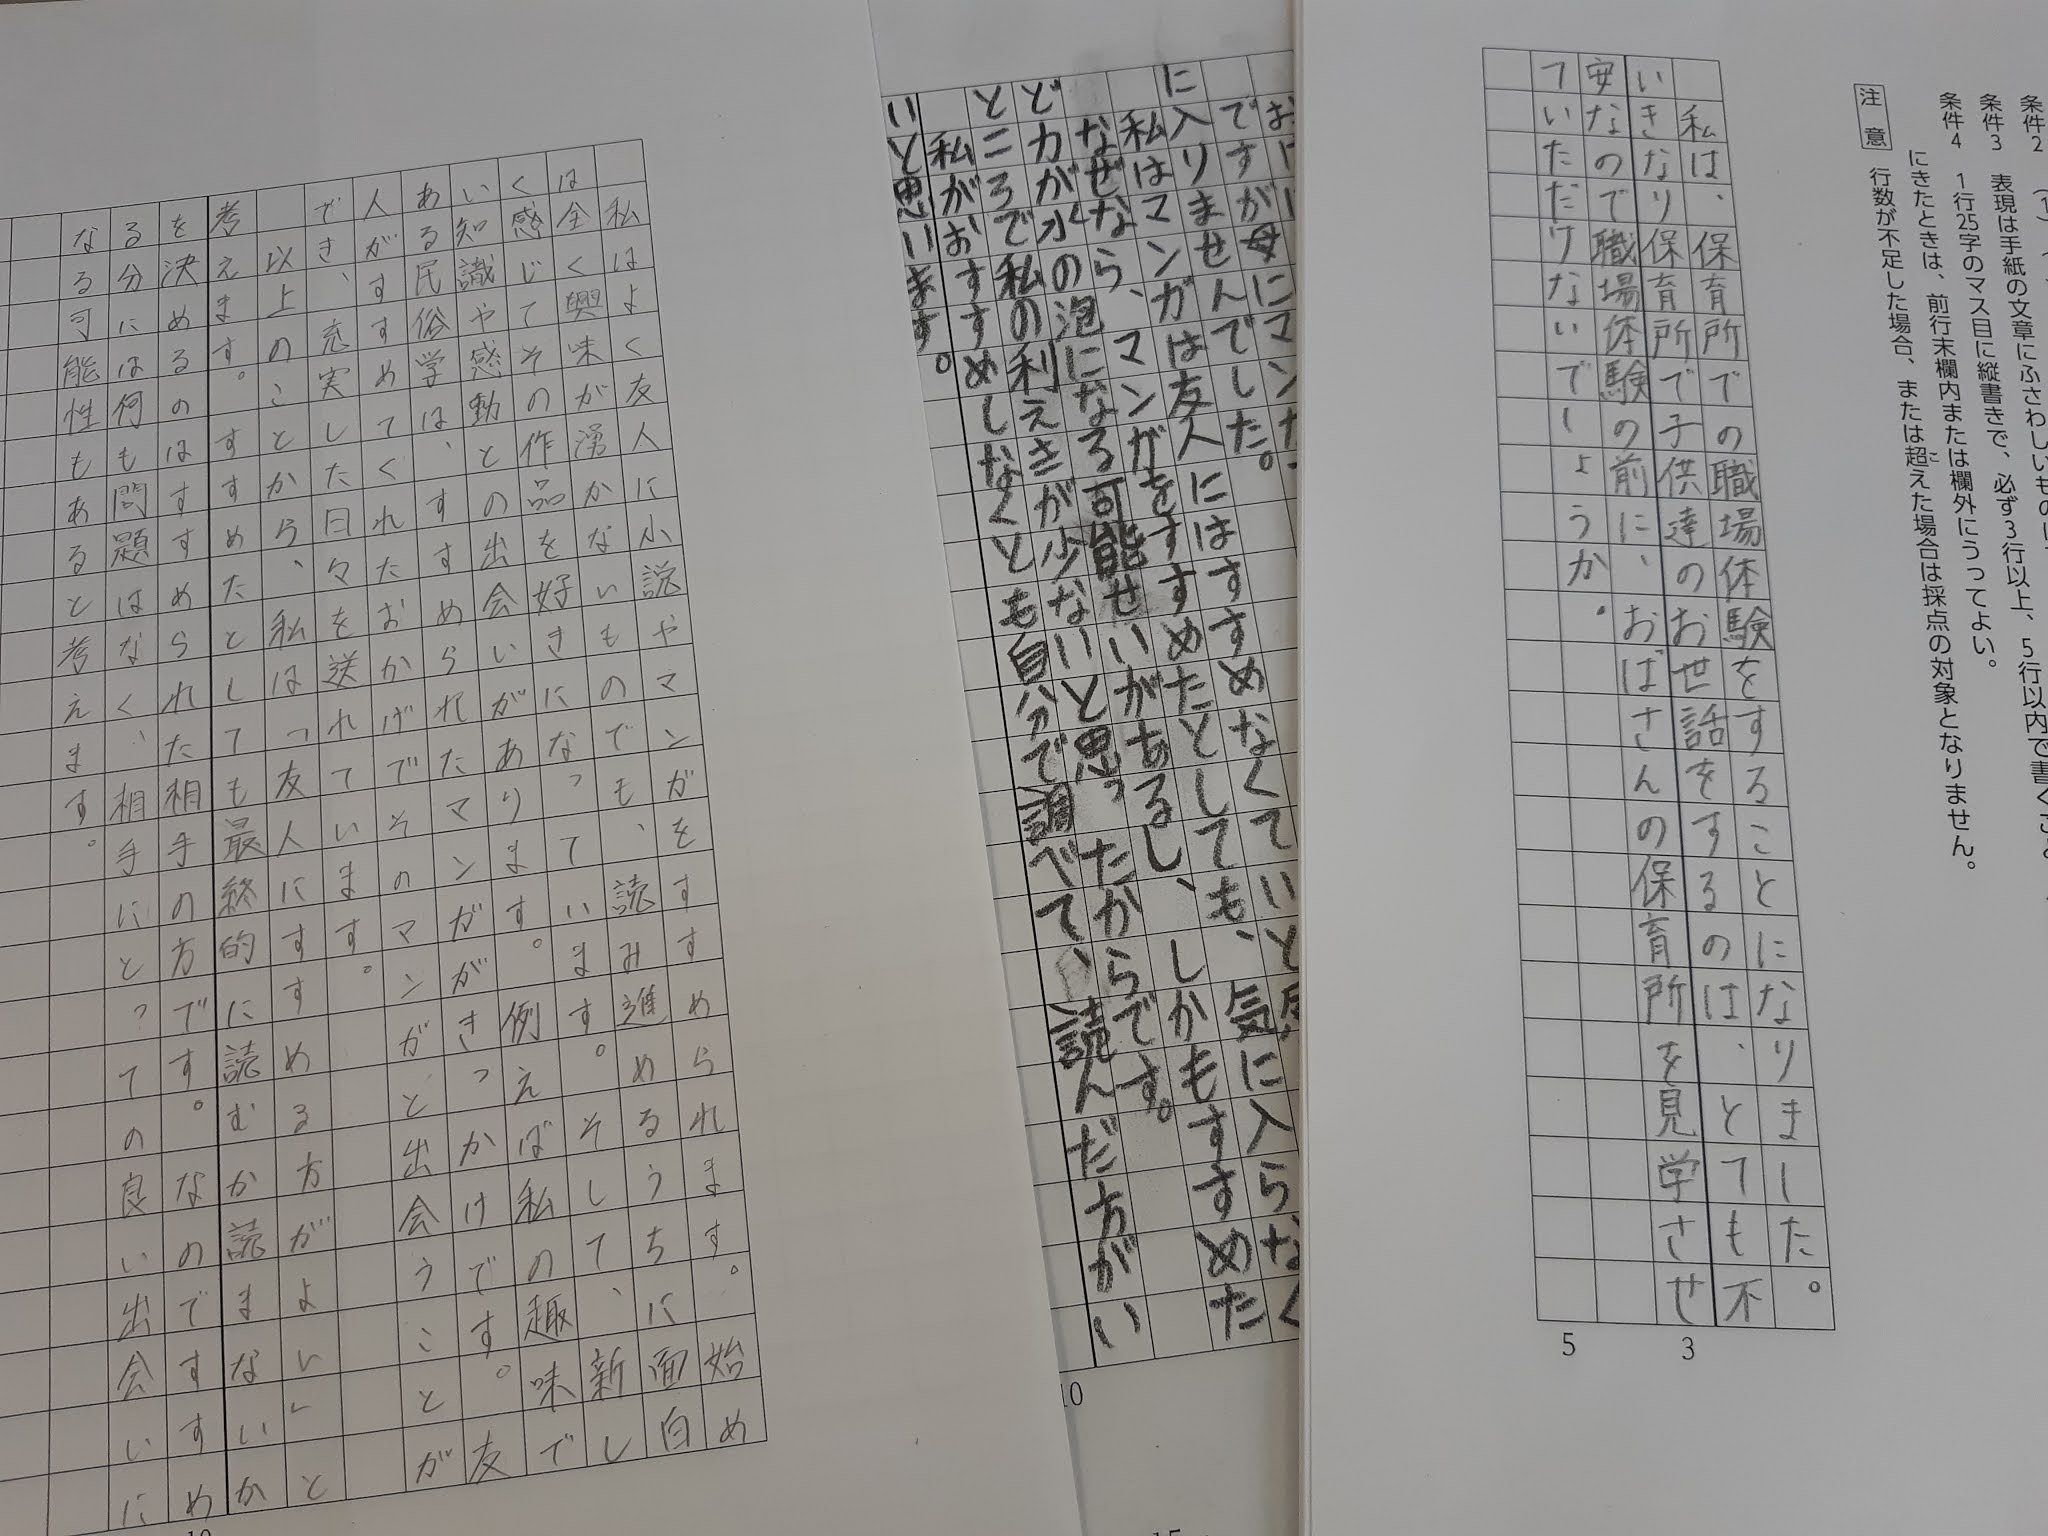 条件2
条件3 表現は手紙の文章にふさわしいものに
条件4 1行25字のマス目に縦書きで、必ず3行以上、5行以内で書くこと
にきたときは、前行末欄内または欄外にうってよい。
注意 行数が不足した場合、または超えた場合は採点の対象となりません。
私は、保育所での職場体験をすることになりました。
いきなり保育所で子供達のお世話をするのは、とても不
安なので職場体験の前に、おばさんの保育所を見学させ
ていただけないでしょうか。
3
5
ですが母にマン
に入りませんでした。
私はマンガは友人にはすすめなくていと思
なぜなら、マンガをすすめたとしても、気に入らなく
ど力が水の泡になる可能せいがあるし、しかもすすめた
ところで私の利えきが少ないと思ったからです。
私がおすすめしなくとも自分で調べて、読んだ方がい
いと思います。
10
15
私はよく友人に小説やマンガをすすめられます。始め
は全く興味が湧かないものでも、読み進めるうちに面白
く感じてその作品を好きになっています。そして、新し
い知識や感動との出会いがあります。例えば私の趣味で
ある民俗学は、すすめられたマンガがきっかけです。友
人がすすめてくれたおかげでそのマンガと出会うことが
でき、充実した日々を送れています。
以上のことから、私は「友人にすすめる方がよい」と
考えます。すすめたとしても最終的に読むか読まないか
を決めるのはすすめられた相手の方です。なのですすめ
る分には何も問題はなく、相手にとっての良い出会いに
なる可能性もあると考えます。
10